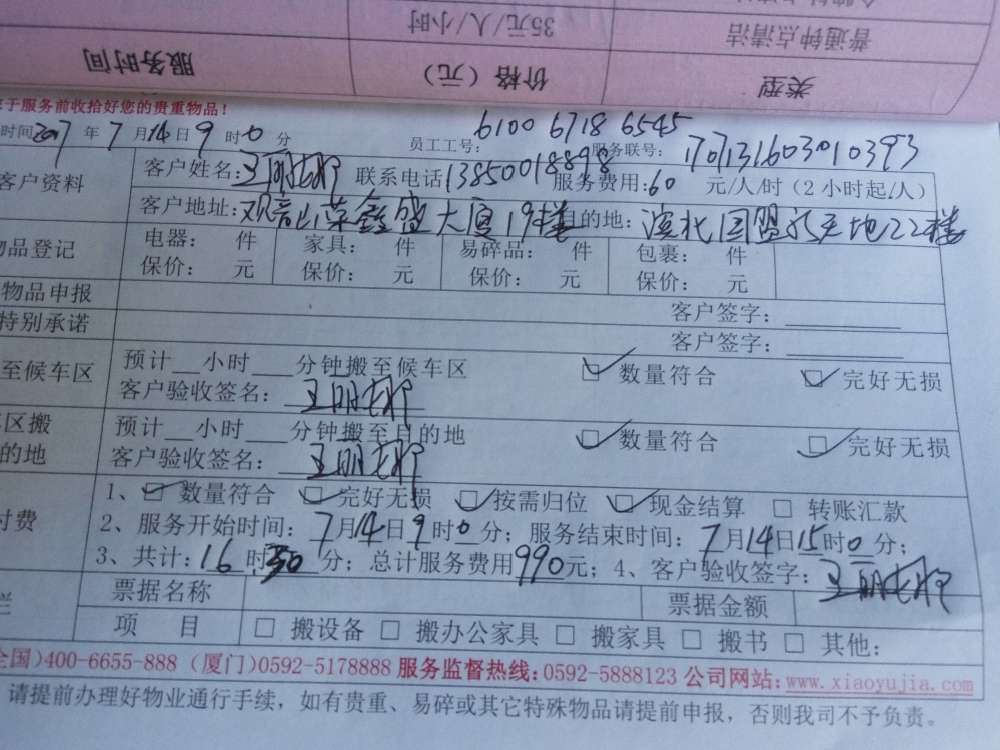 普通钟点清洁 35元/人/小时
类型 价格（元） 服务时间
于服务前收拾好您的贵重物品！
时间2017年7月14日9时0分 员工工号： 6100 6718 6545 服务联号：
客户资料 客户姓名： 联系电话13850018898 服务费用：60 元/人/时（2小时起/人）
客户地址：观音山荣鑫盛大厦19楼 目的地：滨北国盟新天地22楼
物品登记 电器： 件 家具： 件 易碎品： 件 包裹： 件
保价： 元 保价： 元 保价： 元 保价： 元
物品申报 客户签字：
特别承诺 客户签字：
至候车区 预计__小时___分钟搬至候车区 ☑ 数量符合 ☑ 完好无损
客户验收签名：
区搬 预计__小时___分钟搬至目的地 ☑ 数量符合 ☑ 完好无损
的地 客户验收签名：
付费 1、☑ 数量符合 ☑ 完好无损 ☑ 按需归位 ☑ 现金结算 □ 转账汇款
2、服务开始时间：7月14日9时0分；服务结束时间：7月14日15时0分；
3、共计：16时30分；总计服务费用990元；4、客户验收签字：
栏 票据名称 票据金额
项 目 □ 搬设备 □ 搬办公家具 □ 搬家具 □ 搬书 □ 其他：
全国)400-6655-888 (厦门)0592-5178888 服务监督热线：0592-5888123 公司网站：www.xiaoyujia.com
请提前办理好物业通行手续，如有贵重、易碎或其它特殊物品请提前申报，否则我司不予负责。